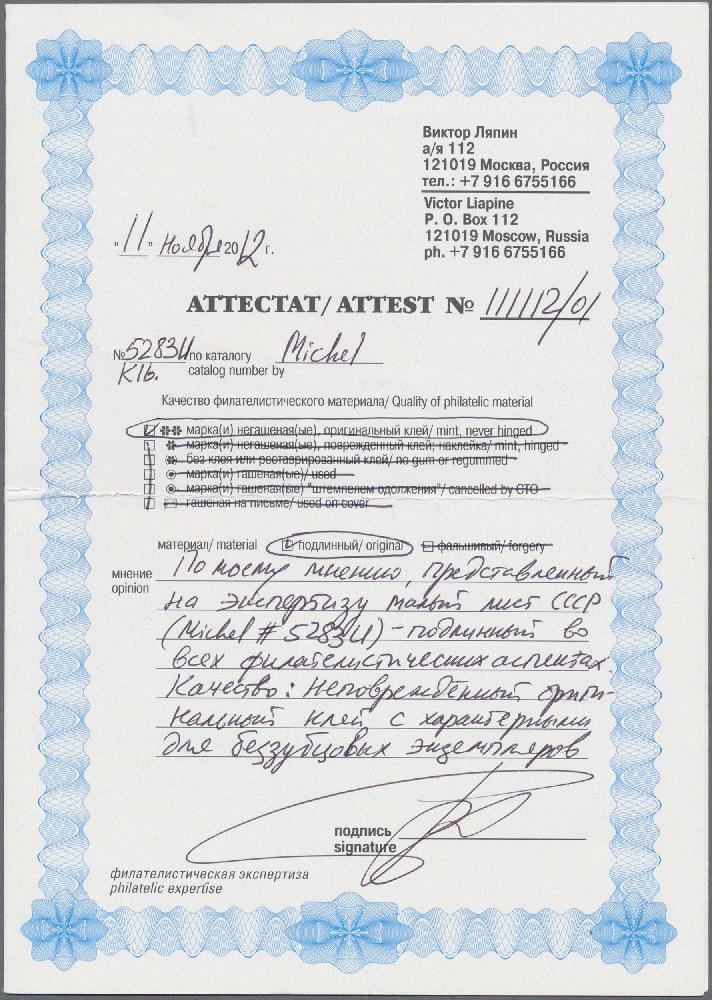 Виктор Ляпин
а/я 112
121019 Москва, Россия
тел.: +7 916 6755166
Victor Liapine
P. O. Box 112
121019 Moscow, Russia
ph. +7 916 6755166
"11" Ноября 2012 г.
АТТЕСТАТ/ ATTEST № 111112/01
№ 5283U по каталогу Michel
Klb. catalog number by
Качество филателистического материала/ Quality of philatelic material
марка(и) негашеная(ые), оригинальный клей/ mint, never hinged
марка(и) негашеная(ые), поврежденный клей; наклейка/ mint, hinged
без клея или реставрированный клей/ no gum or regummed
марка(и) гашеная(ые)/ used
марка(и) гашеная(ые) "штемпелем одолжения"/ cancelled by CTO
гашеная на письме/ used on cover
материал/ material подлинный/ original фальшивый/ forgery
мнение По моему мнению, представленный
opinion
на экспертизу малый лист СССР
(Michel # 5283U) - подлинный во
всех филателистических аспектах.
Качество: Неповреждённый ориги-
нальный клей с характерными
для беззубцовых экземпляров
подпись
signature
филателистическая экспертиза
philatelic expertise